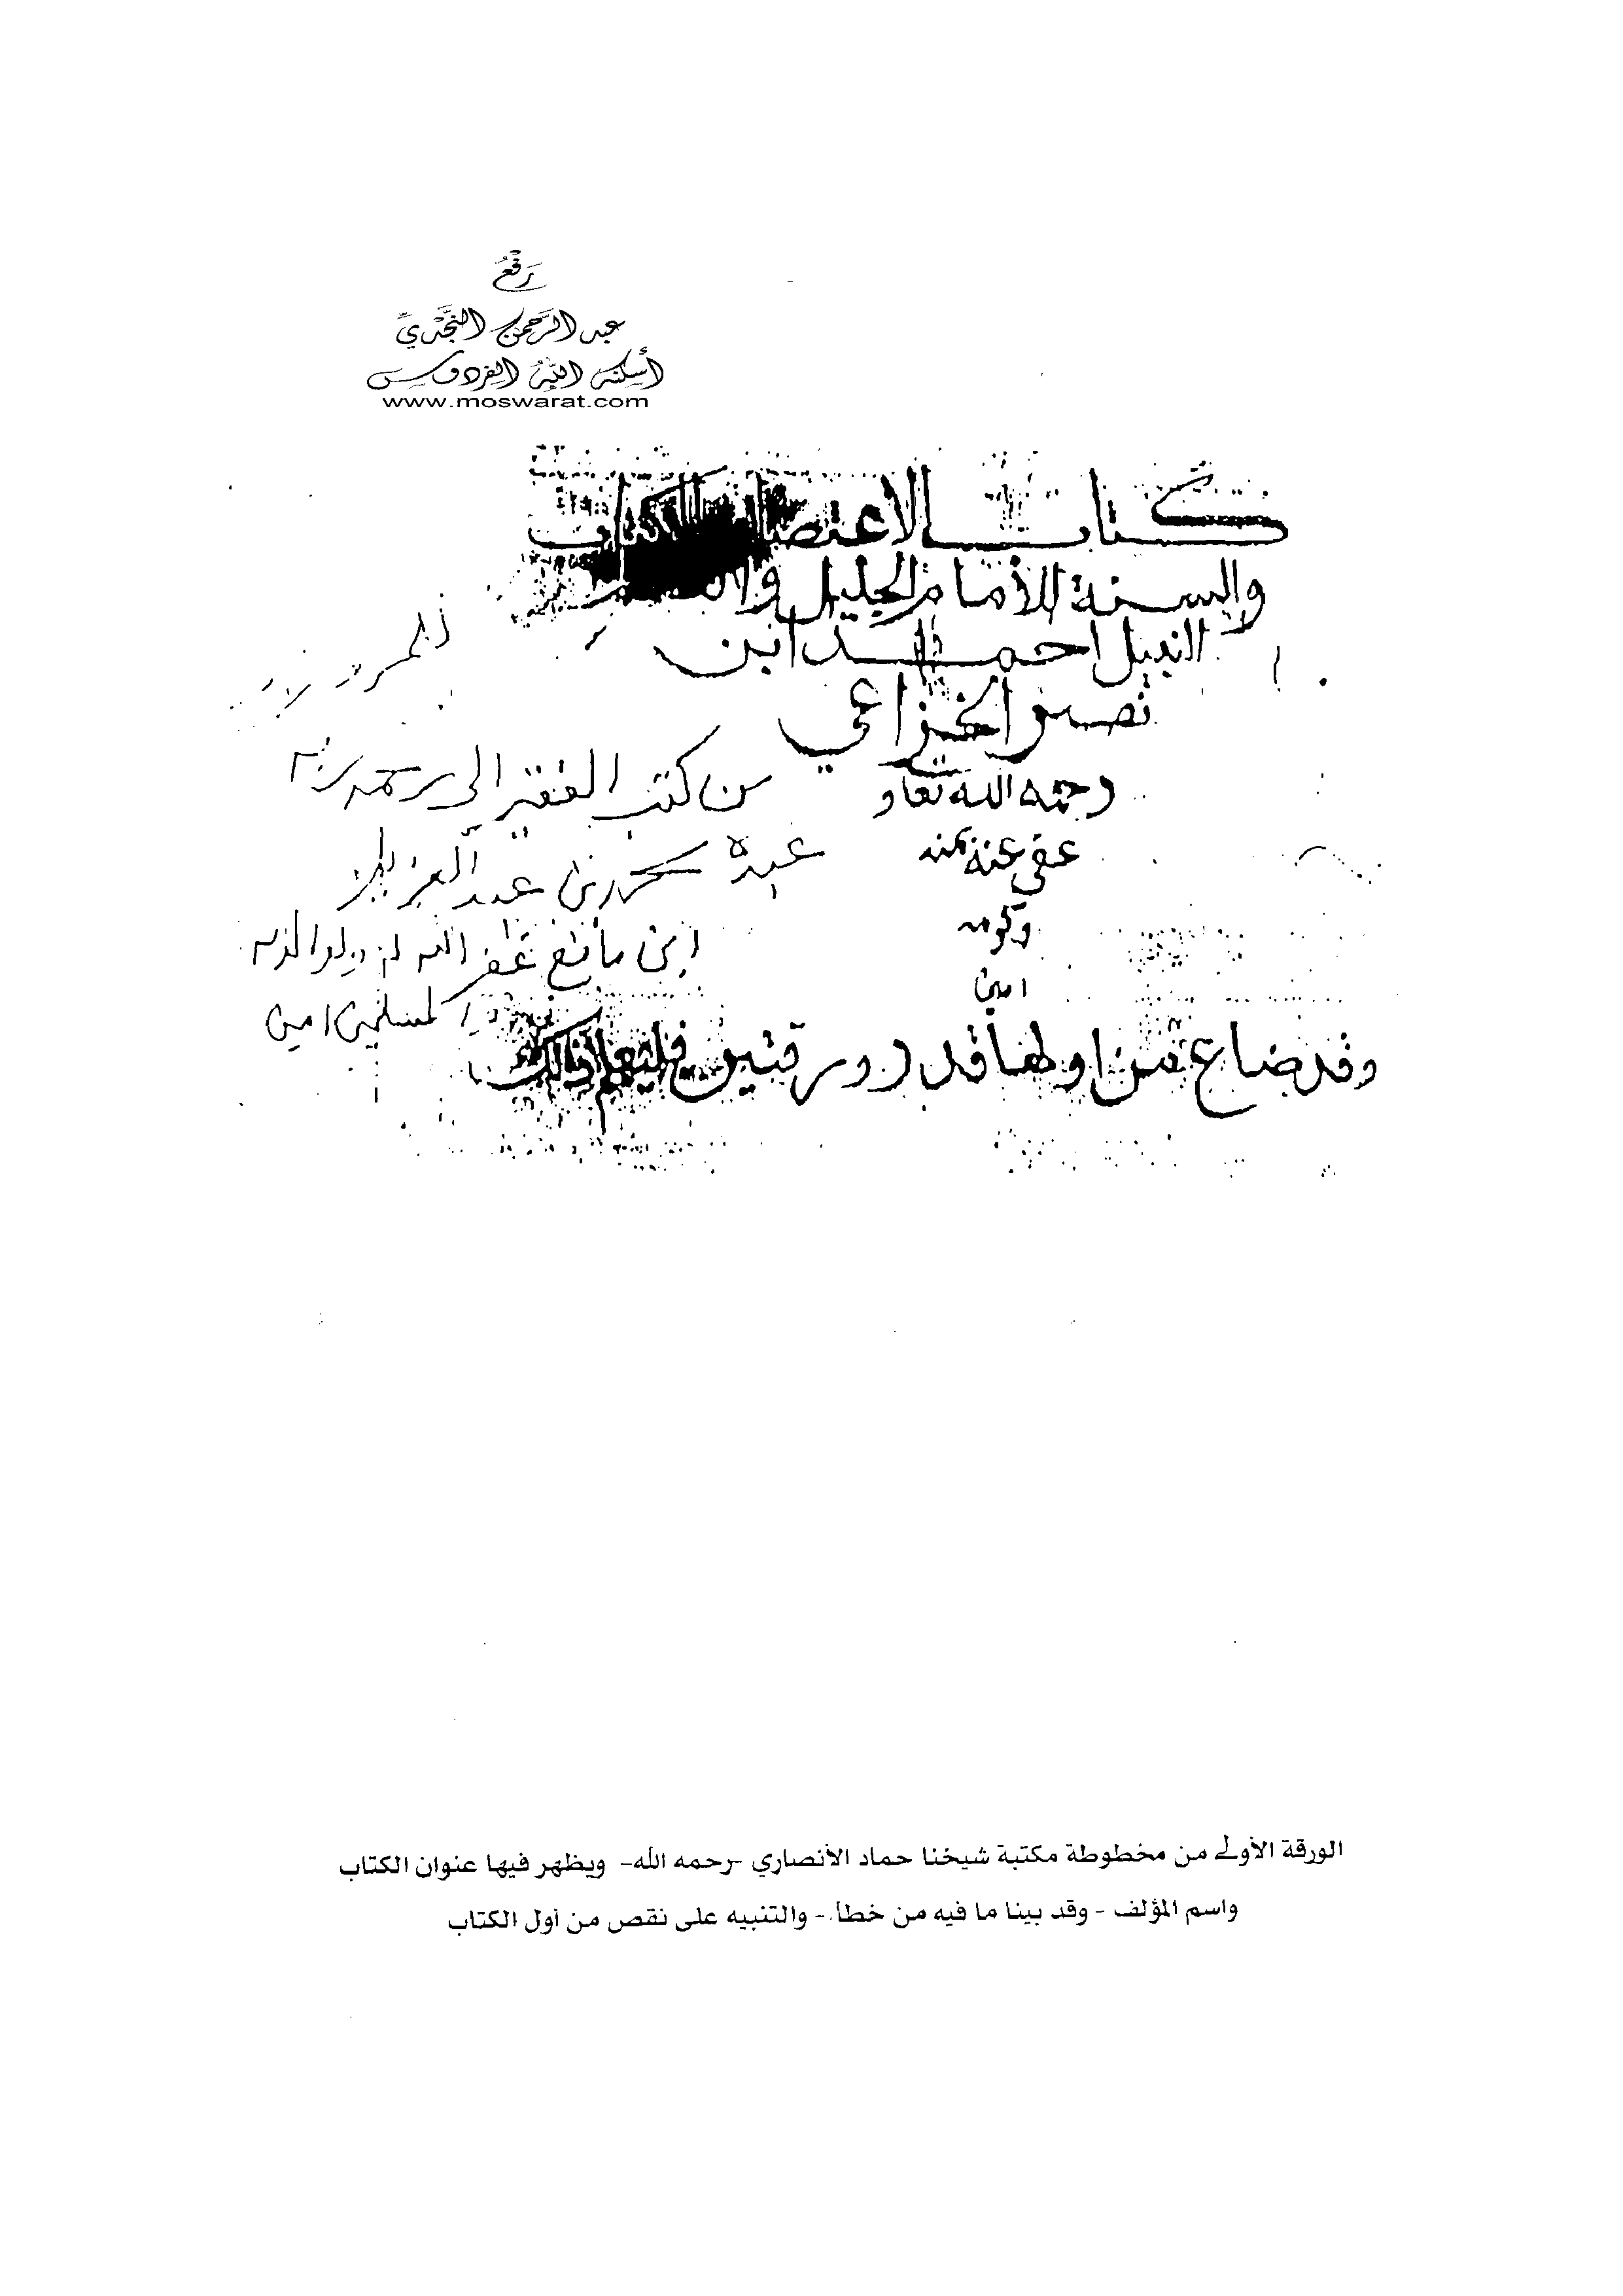 رَفْعُ
عبد الرَّحمن النَّجْدِيِّ
أَسكنه اللهُ الفردوس
www.moswarat.com
كتاب الاعتصام بالكتاب
والسنة للأمام الجليل
النبيل احمد ابن
نصر الخزاعي
رحمه الله تعا و
عفى عنه بمنه
وكرمه
امين
من كتب الفقير الى رحمة ربه
عبده محمد بن عبد العزيز
ابن مانع غفر الله له ولوالديه
المسلمين امين
وقد ضاع من اولها قدر ورقتين فليعلم ذالك
الورقة الأولى من مخطوطة مكتبة شيخنا حماد الأنصاري -رحمه الله- ويظهر فيها عنوان الكتاب
واسم المؤلف - وقد بينا ما فيه من خطأ - والتنبيه على نقص من أول الكتاب